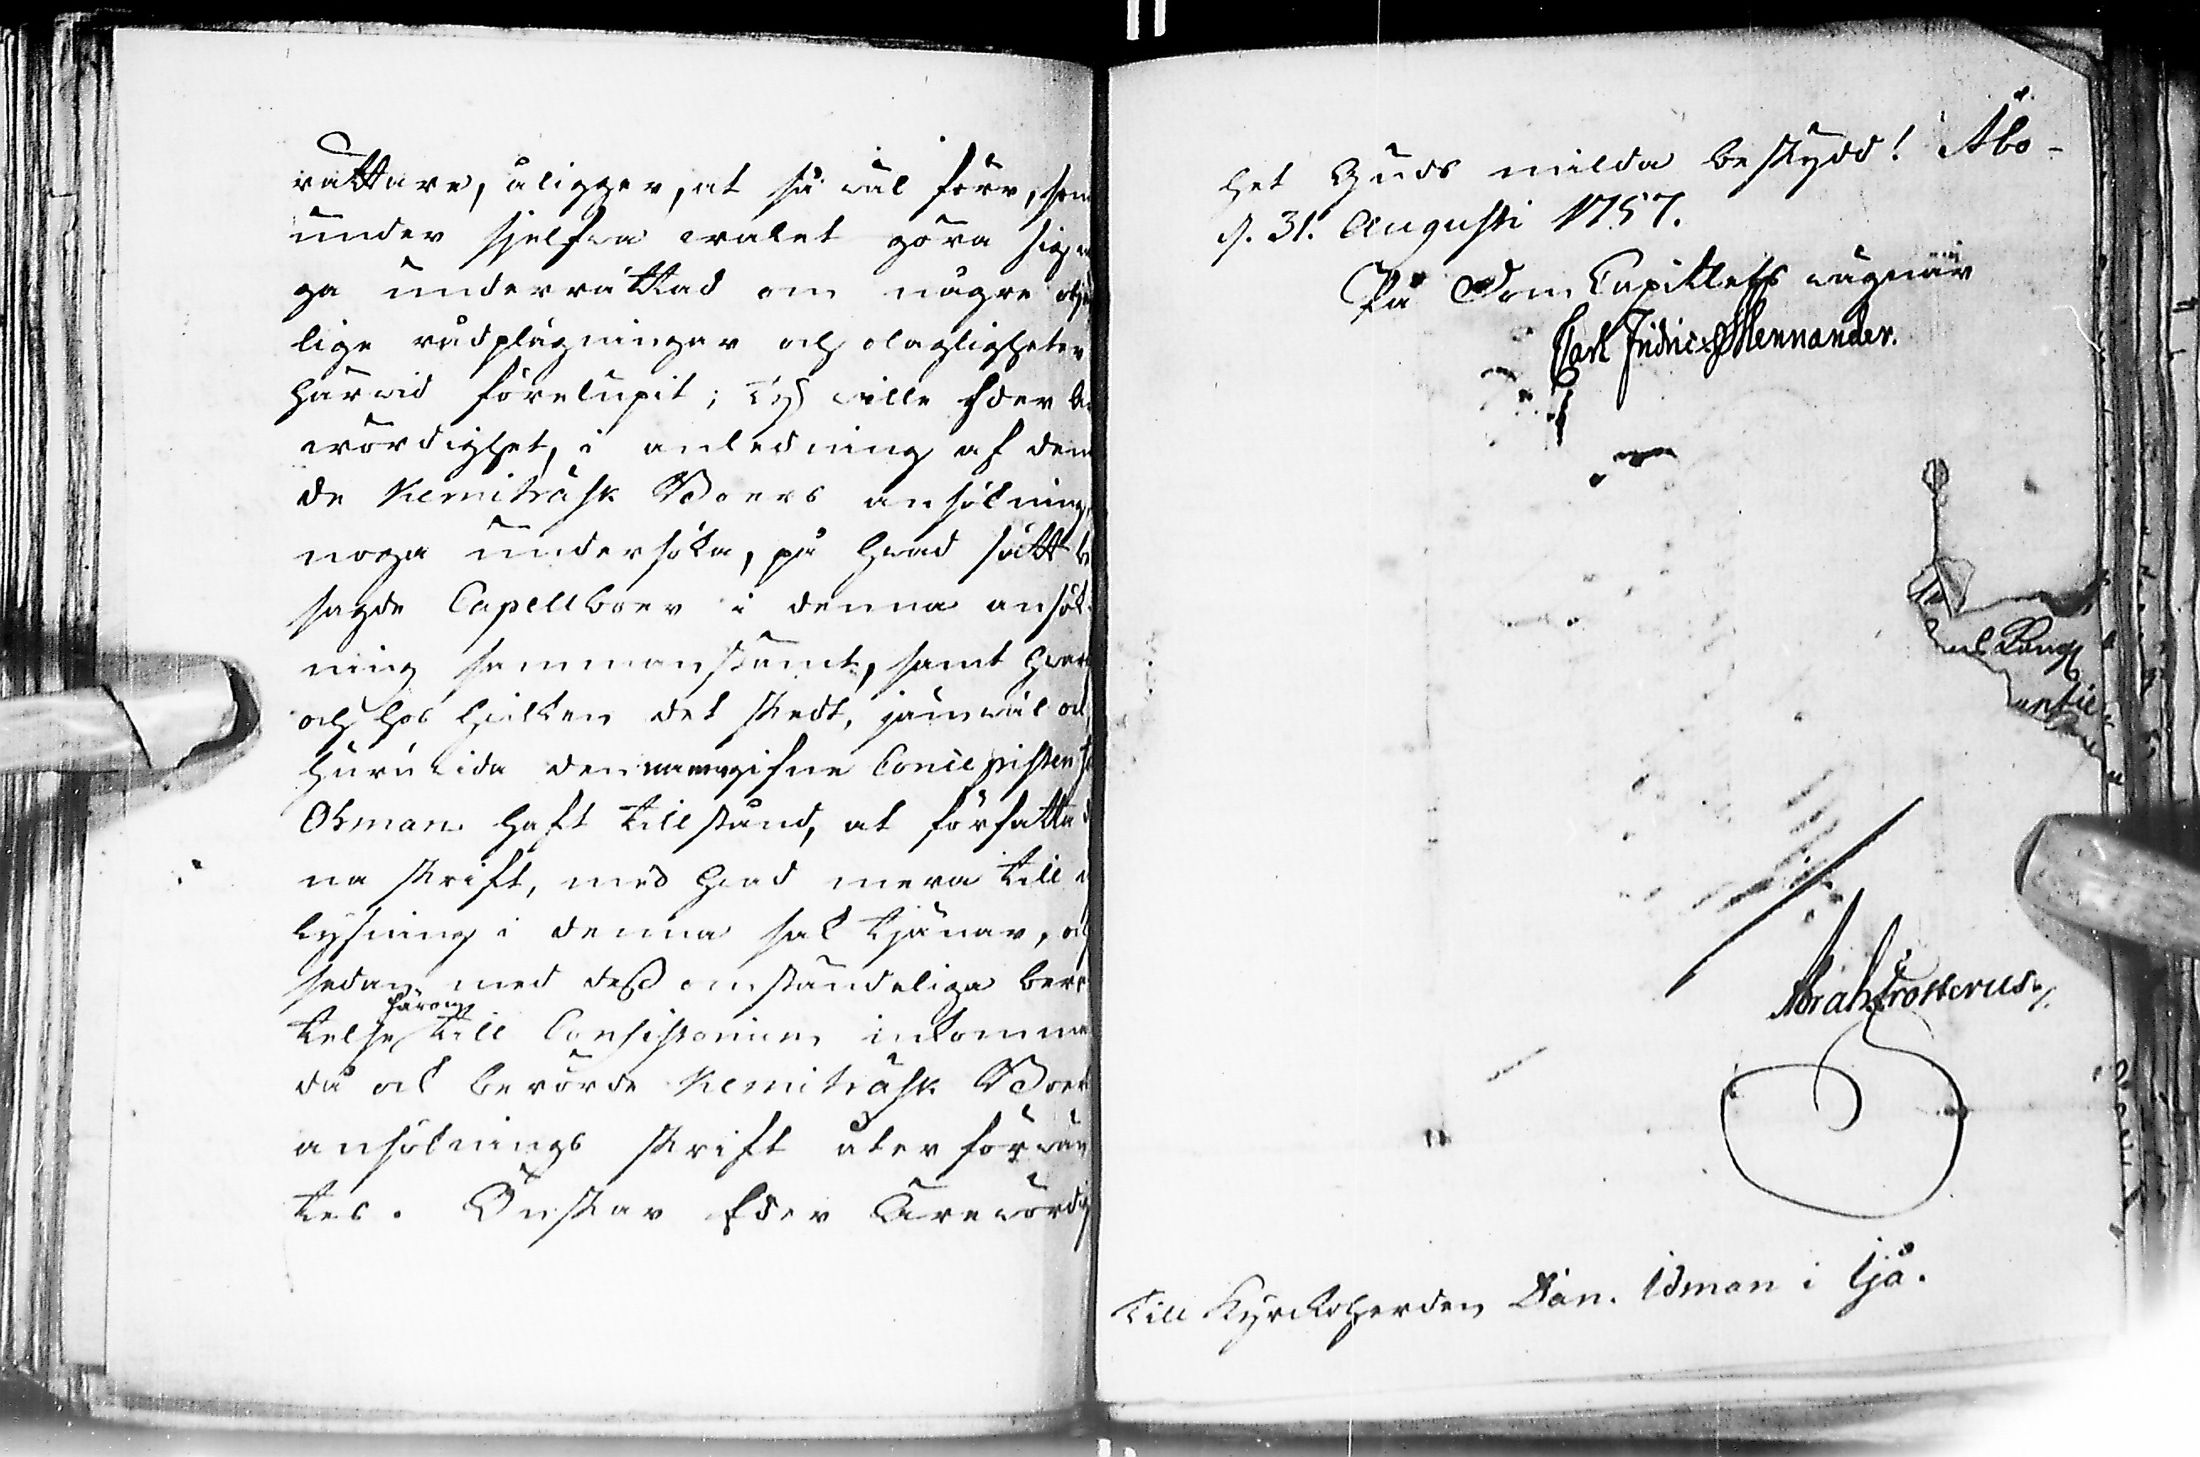 rättare, åligger, at så wäl förr, som
under sjelfwa walet göra sig
ga underrättad om någre
lige rådplägningar och olagligheter
härwid förelupit; Ty wille Eder
wördighet, i anledning af
de Kemiträsk Boers ansökning,
noga undersöka, på hwad sätt
sagde Capellboer i denna ansök-
ning sammanstämt, samt
och hos hwilken det skedt, jämwäl
huruwida den namngifne Concipisten
Ohman haft tillstånd, at författa
na skrift, med hwad mera till
lysning i denna sak tjänar, och
sedan med dess omständeliga
telse härom till Consistorium inkomma
då ock berörde Kemiträsk
ansöknings skrift åter förwän
tes. Önskar Eder Ärewördig
het Guds milda beskydd! Åbo
d. 31. Augusti 1757.
På Dom Capitlets wägnar
Carl Fridric Mennander.
Abrah Frosterus
Till Kyrkoherden Dan. Idman i Ijå.